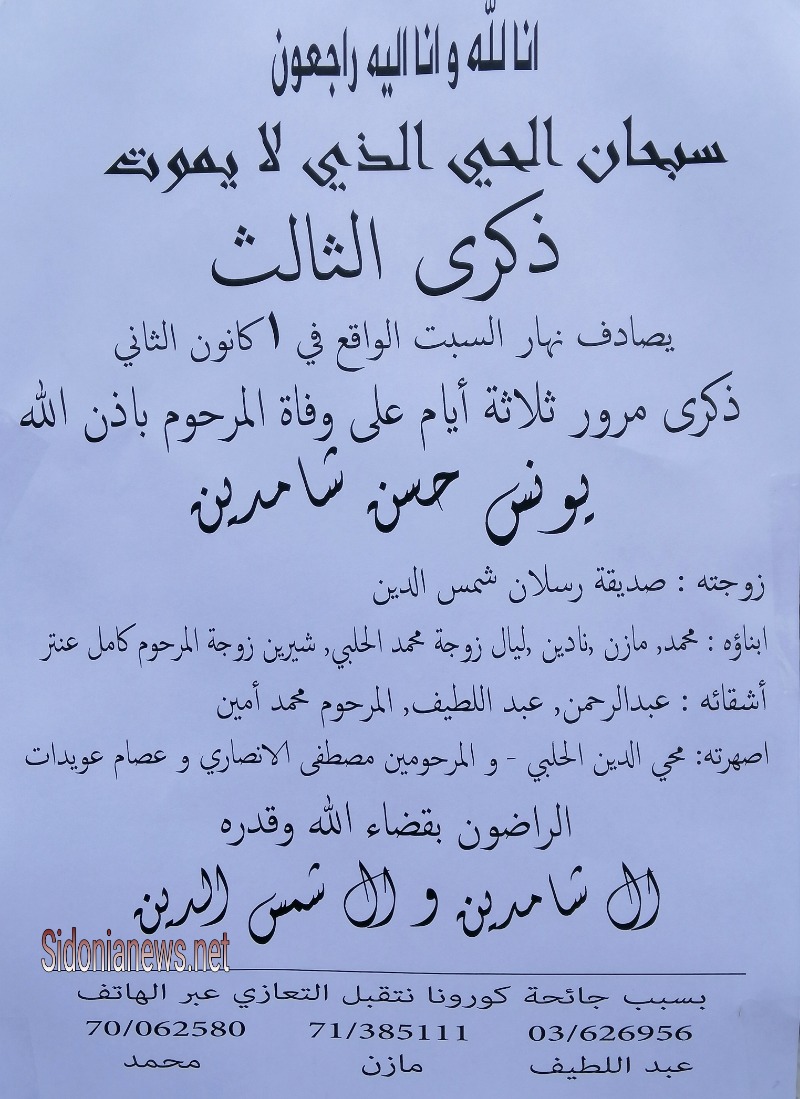 انا لله و انا اليه راجعون
سبحان الحي الذي لا يموت
ذكرى الثالث
يصادف نهار السبت الواقع في ١ كانون الثاني
ذكرى مرور ثلاثة أيام على وفاة المرحوم باذن الله
يونس حسن شامدين
زوجته : صديقة رسلان شمس الدين
ابناؤه : محمد, مازن ,نادين ,ليال زوجة محمد الحلبي, شيرين زوجة المرحوم كامل عنتر
أشقائه : عبدالرحمن, عبد اللطيف, المرحوم محمد أمين
اصهرته: محي الدين الحلبي - و المرحومين مصطفى الانصاري و عصام عويدات
الراضون بقضاء الله وقدره
ال شامدين و ال شمس الدين
Sidonianews.net
بسبب جائحة كورونا نتقبل التعازي عبر الهاتف
03/626956 71/385111 70/062580
عبد اللطيف مازن محمد